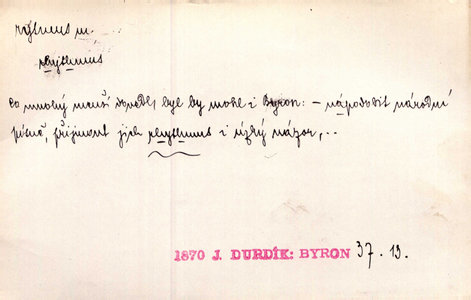 rytmus m.
rhythmus
co mnohý menší dovedl, byl by mohl i Byron: – nápodobit národní
písně, přijmout jich rhythmus i úzký názor,..
1870 J. DURDÍK: BYRON 37. 13.